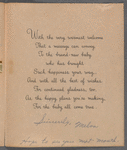 With the very warmest welcome
That a message can convey
To the brand new baby
who has brought
Such happiness your way,
And with all the best of wishes
For continued gladness, too
As the happy plans you're making
For the baby all come true.
Sincerely,
to see you next month